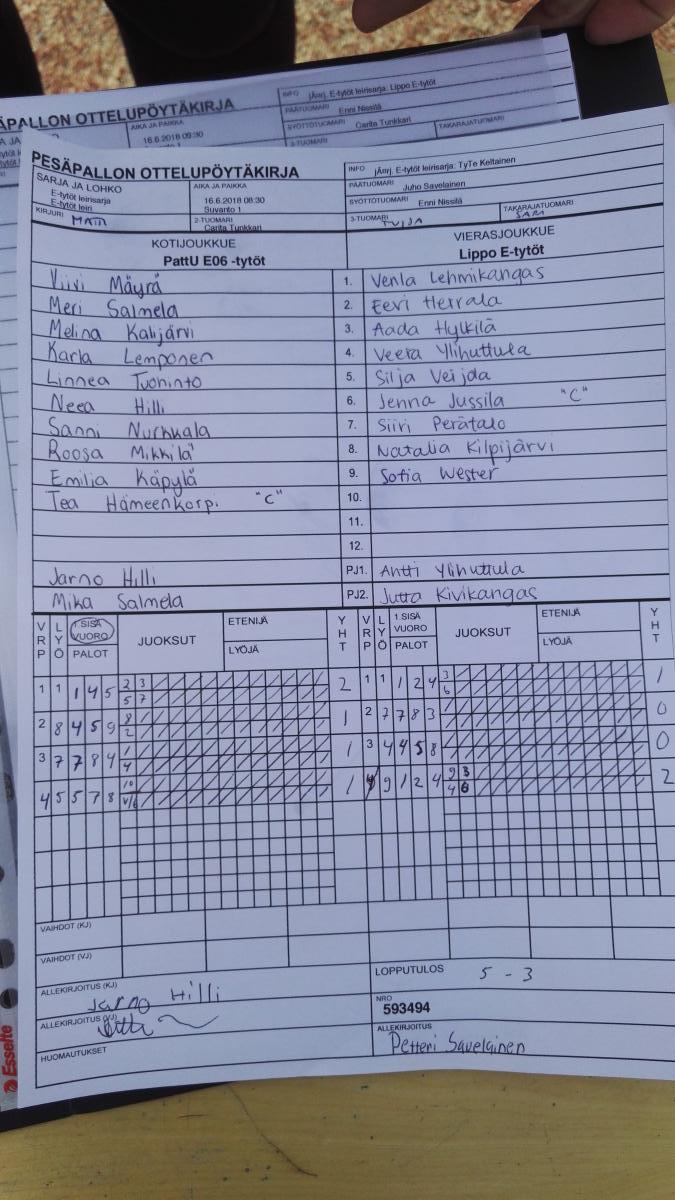 ÄPALLON OTTELUPÖYTÄKIRJA
AIKA JA PAIKKA
16.6.2018 09:30
INFO jÄrrj. E-tytöt leirisarja: Lippo E-tytöt
PÄÄTUOMARI Enni Nissilä
SYÖTTÖTUOMARI Carita Tunkkari
TAKARAJATUOMARI
PESÄPALLON OTTELUPÖYTÄKIRJA
SARJA JA LOHKO
E-tytöt leirisarja
E-tytöt leiri
AIKA JA PAIKKA
16.6.2018 08:30
Suvanto 1
KIRJURI MATTI
2-TUOMARI
Carita Tunkkari
INFO jÄrrj. E-tytöt leirisarja: TyTe Keltainen
PÄÄTUOMARI Juho Savelainen
SYÖTTÖTUOMARI Enni Nissilä
3-TUOMARI TUIJA
TAKARAJATUOMARI SARA
KOTIJOUKKUE
PattU E06 -tytöt
VIERASJOUKKUE
Lippo E-tytöt
Viivi Mäyrä 1. Venla Lehmikangas
Meri Salmela 2. Eevi Herrala
Melina Kalijärvi 3. Aada Hylkilä
Karla Lemponen 4. Veera Ylihuttula
Linnea Tuohinto 5. Silja Veijola
Neea Hilli 6. Jenna Jussila "C"
Sanni Nurkkala 7. Siiri Perätalo
Roosa Mikkilä 8. Natalia Kilpijärvi
Emilia Käpylä 9. Sofia Wester
Tea Hämeenkorpi "C" 10.
11.
12.
Jarno Hilli PJ1. Antti Ylihuttula
Mika Salmela PJ2. Jutta Kivikangas
VRP LYÖ 1.SISÄ VUORO PALOT JUOKSUT ETENIJÄ LYÖJÄ YHT VRP LYÖ 1.SISÄ VUORO PALOT JUOKSUT ETENIJÄ LYÖJÄ YHT
1 1 1 4 5 2/5 3/7 2 1 1 1 2 4 3/6 1
2 8 4 5 9 8/2 1 2 7 7 8 3 0
3 7 7 8 4 1/4 1 3 4 4 5 8 0
4 5 5 7 8 10/V/6 1 4 9 1 2 4 2/4 3/6 2
VAIHDOT (KJ)
VAIHDOT (VJ)
ALLEKIRJOITUS (KJ) Jarno Hilli
LOPPUTULOS 5 - 3
ALLEKIRJOITUS (VJ)
NRO
593494
HUOMAUTUKSET
ALLEKIRJOITUS
Petteri Savelainen
Esselte